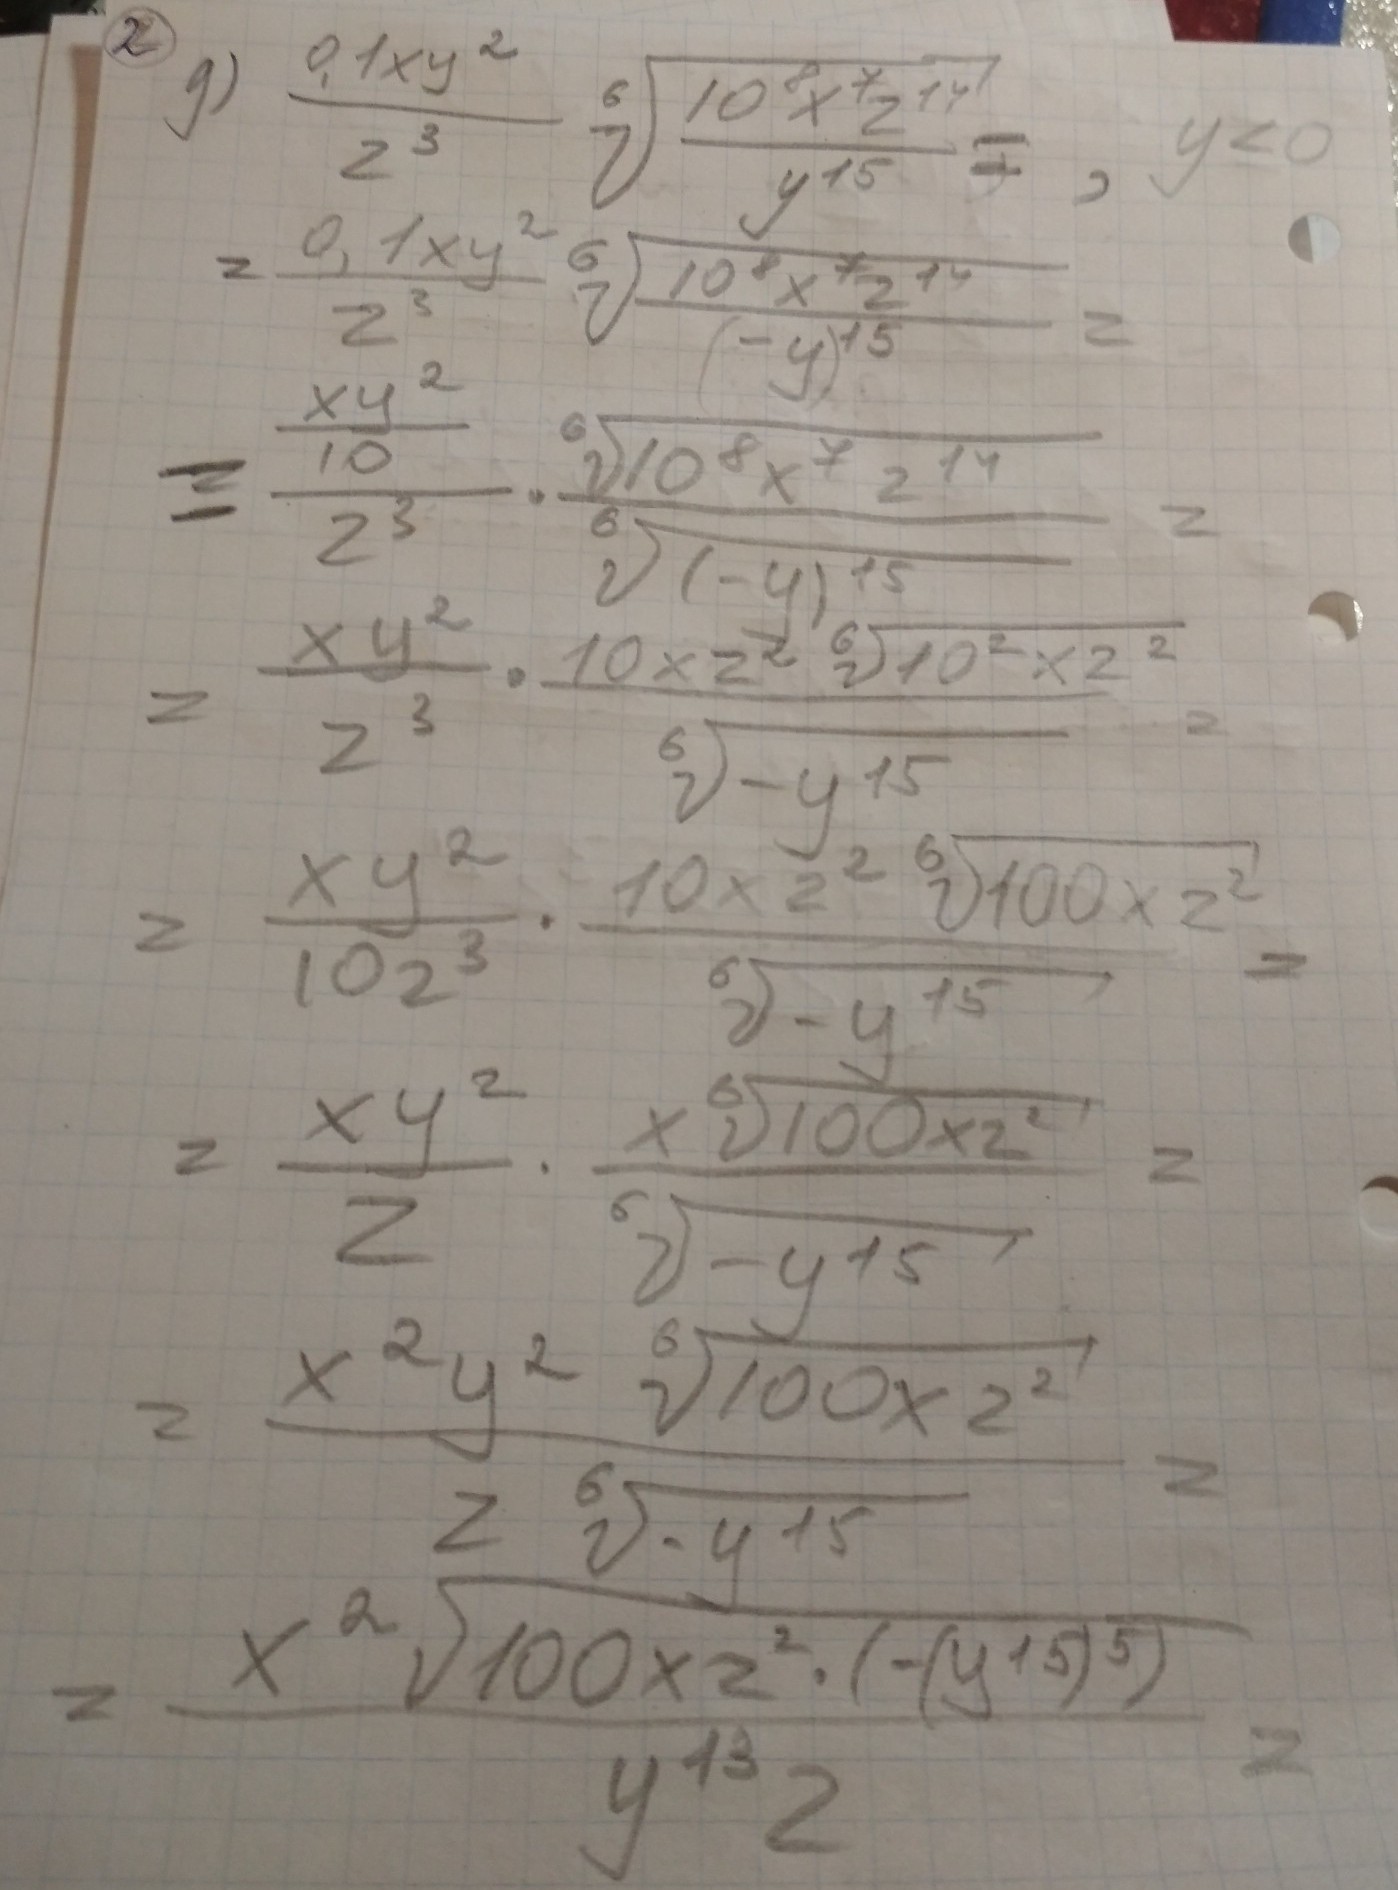 ② g) 0,1xy²/z³ ⁶√(10⁸x⁷z¹⁴/y¹⁵) = , y<0
= 0,1xy²/z³ ⁶√(10⁸x⁷z¹⁴/(-y)¹⁵) =
= (xy²/10)/z³ · ⁶√(10⁸x⁷z¹⁴)/⁶√((-y)¹⁵) =
= xy²/z³ · 10xz² ⁶√(10²xz²)/⁶√(-y¹⁵) =
= xy²/10z³ · 10xz² ⁶√(100xz²)/⁶√(-y¹⁵) =
= xy²/z · x ⁶√(100xz²)/⁶√(-y¹⁵) =
= x²y² ⁶√(100xz²)/z ⁶√(-y¹⁵) =
= x² √(100xz²·(-(y¹⁵)⁵))/y¹³z =